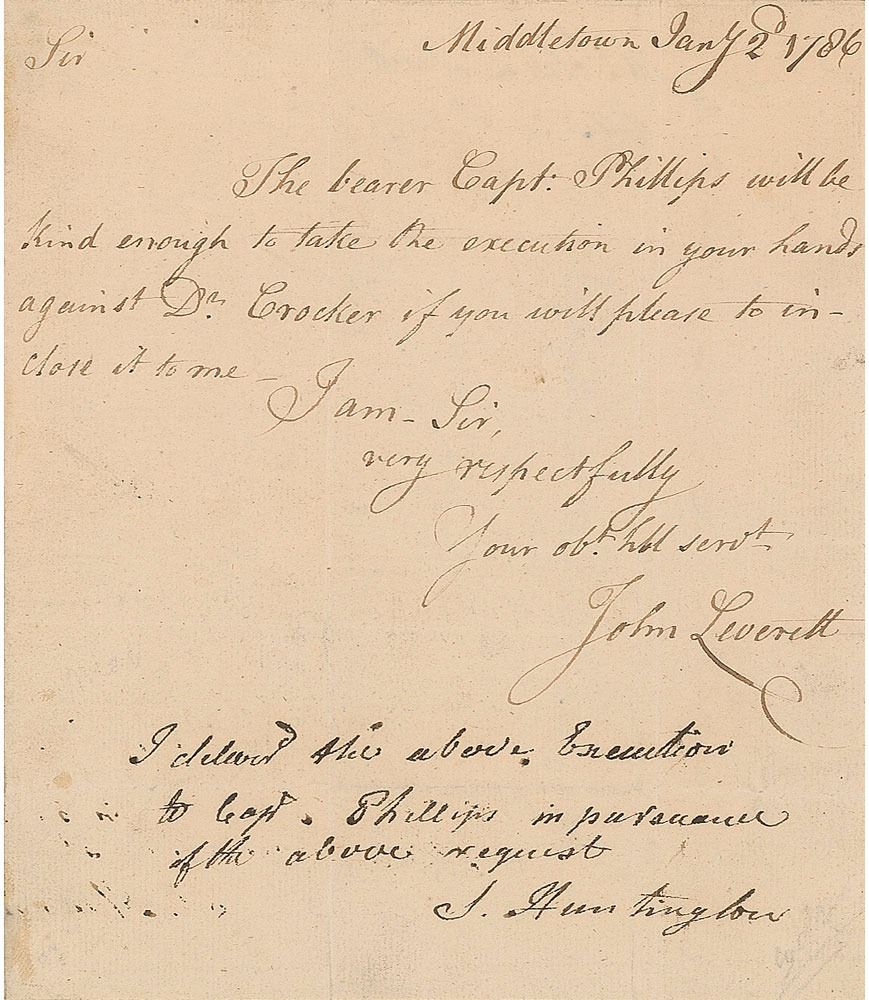 Middletown Jany 2d 1786
Sir
The bearer Capt. Phillips will be
kind enough to take the execution in your hands
against Dr. Crocker if you will please to in-
close it to me –
I am – Sir,
very respectfully
Your obt. hbl servt
John Leverett
I deliver'd the above Execution
to Capt. Phillips in pursuance
of the above request
S. Huntington